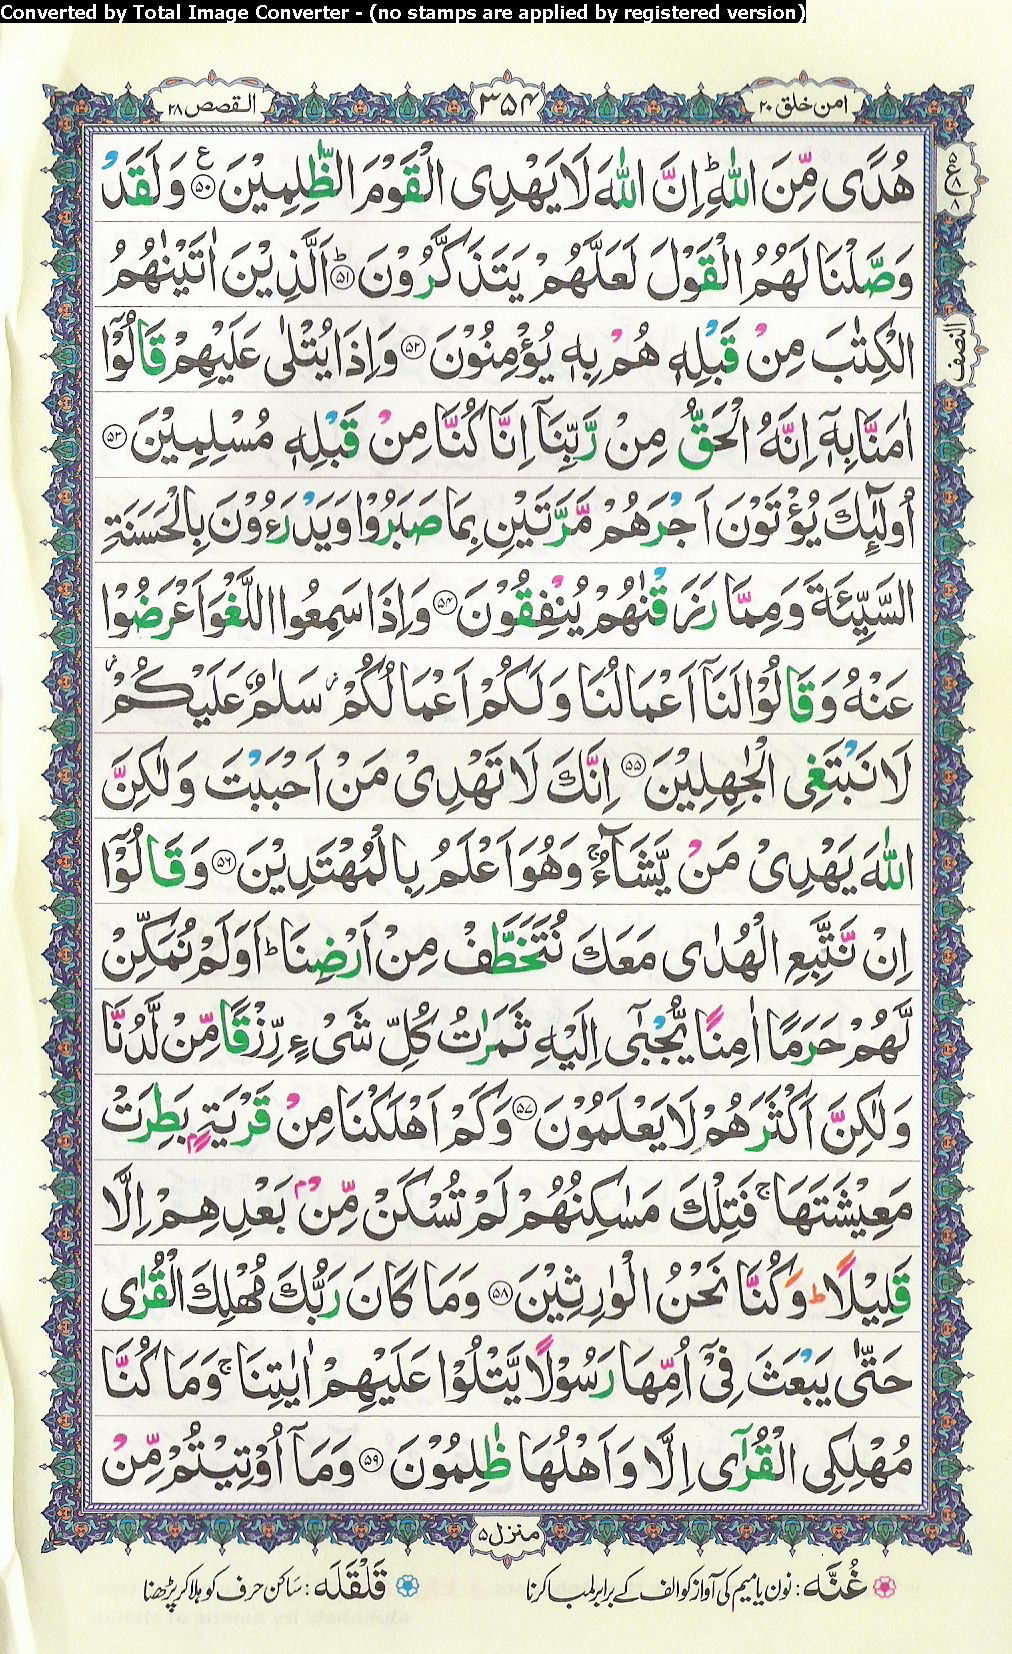 Converted by Total Image Converter - (no stamps are applied by registered version)
امن خلق ۲۰
۳۵۴
القصص ۲۸
هُدًى مِّنَ اللّٰهِؕ اِنَّ اللّٰهَ لَا يَهْدِى الْقَوْمَ الظّٰلِمِيْنَ ﴿۵۰﴾ ع وَلَقَدْ
وَصَّلْنَا لَهُمُ الْقَوْلَ لَعَلَّهُمْ يَتَذَكَّرُوْنَؕ ﴿۵۱﴾ اَلَّذِيْنَ اٰتَيْنٰهُمُ
الْكِتٰبَ مِنْ قَبْلِهٖ هُمْ بِهٖ يُؤْمِنُوْنَ ﴿۵۲﴾ وَاِذَا يُتْلٰى عَلَيْهِمْ قَالُوْۤا
اٰمَنَّا بِهٖۤ اِنَّهُ الْحَقُّ مِنْ رَّبِّنَاۤ اِنَّا كُنَّا مِنْ قَبْلِهٖ مُسْلِمِيْنَ ﴿۵۳﴾
اُولٰٓئِكَ يُؤْتَوْنَ اَجْرَهُمْ مَّرَّتَيْنِ بِمَا صَبَرُوْا وَيَدْرَءُوْنَ بِالْحَسَنَةِ
السَّيِّئَةَ وَمِمَّا رَزَقْنٰهُمْ يُنْفِقُوْنَ ﴿۵۴﴾ وَاِذَا سَمِعُوا اللَّغْوَ اَعْرَضُوْا
عَنْهُ وَقَالُوْا لَنَاۤ اَعْمَالُنَا وَلَكُمْ اَعْمَالُكُمْ سَلٰمٌ عَلَيْكُمْ
لَا نَبْتَغِى الْجٰهِلِيْنَ ﴿۵۵﴾ اِنَّكَ لَا تَهْدِىْ مَنْ اَحْبَبْتَ وَلٰكِنَّ
اللّٰهَ يَهْدِىْ مَنْ يَّشَآءُۚ وَهُوَ اَعْلَمُ بِالْمُهْتَدِيْنَ ﴿۵۶﴾ وَقَالُوْۤا
اِنْ نَّتَّبِعِ الْهُدٰى مَعَكَ نُتَخَطَّفْ مِنْ اَرْضِنَاؕ اَوَلَمْ نُمَكِّنْ
لَّهُمْ حَرَمًا اٰمِنًا يُّجْبٰٓى اِلَيْهِ ثَمَرٰتُ كُلِّ شَىْءٍ رِّزْقًا مِّنْ لَّدُنَّا
وَلٰكِنَّ اَكْثَرَهُمْ لَا يَعْلَمُوْنَ ﴿۵۷﴾ وَكَمْ اَهْلَكْنَا مِنْ قَرْيَةٍۭ بَطِرَتْ
مَعِيْشَتَهَاۚ فَتِلْكَ مَسٰكِنُهُمْ لَمْ تُسْكَنْ مِّنْۢ بَعْدِهِمْ اِلَّا
قَلِيْلًاؕ وَكُنَّا نَحْنُ الْوٰرِثِيْنَ ﴿۵۸﴾ وَمَا كَانَ رَبُّكَ مُهْلِكَ الْقُرٰى
حَتّٰى يَبْعَثَ فِىْۤ اُمِّهَا رَسُوْلًا يَّتْلُوْا عَلَيْهِمْ اٰيٰتِنَاۚ وَمَا كُنَّا
مُهْلِكِى الْقُرٰٓى اِلَّا وَاَهْلُهَا ظٰلِمُوْنَ ﴿۵۹﴾ وَمَاۤ اُوْتِيْتُمْ مِّنْ
۵
ع۸
۸
النصف
منزل ۵
غُنَّه: نون یا میم کی آواز کو الف کے برابر لمبا کرنا
قَلْقَلَه: ساکن حرف کو ہلا کر پڑھنا